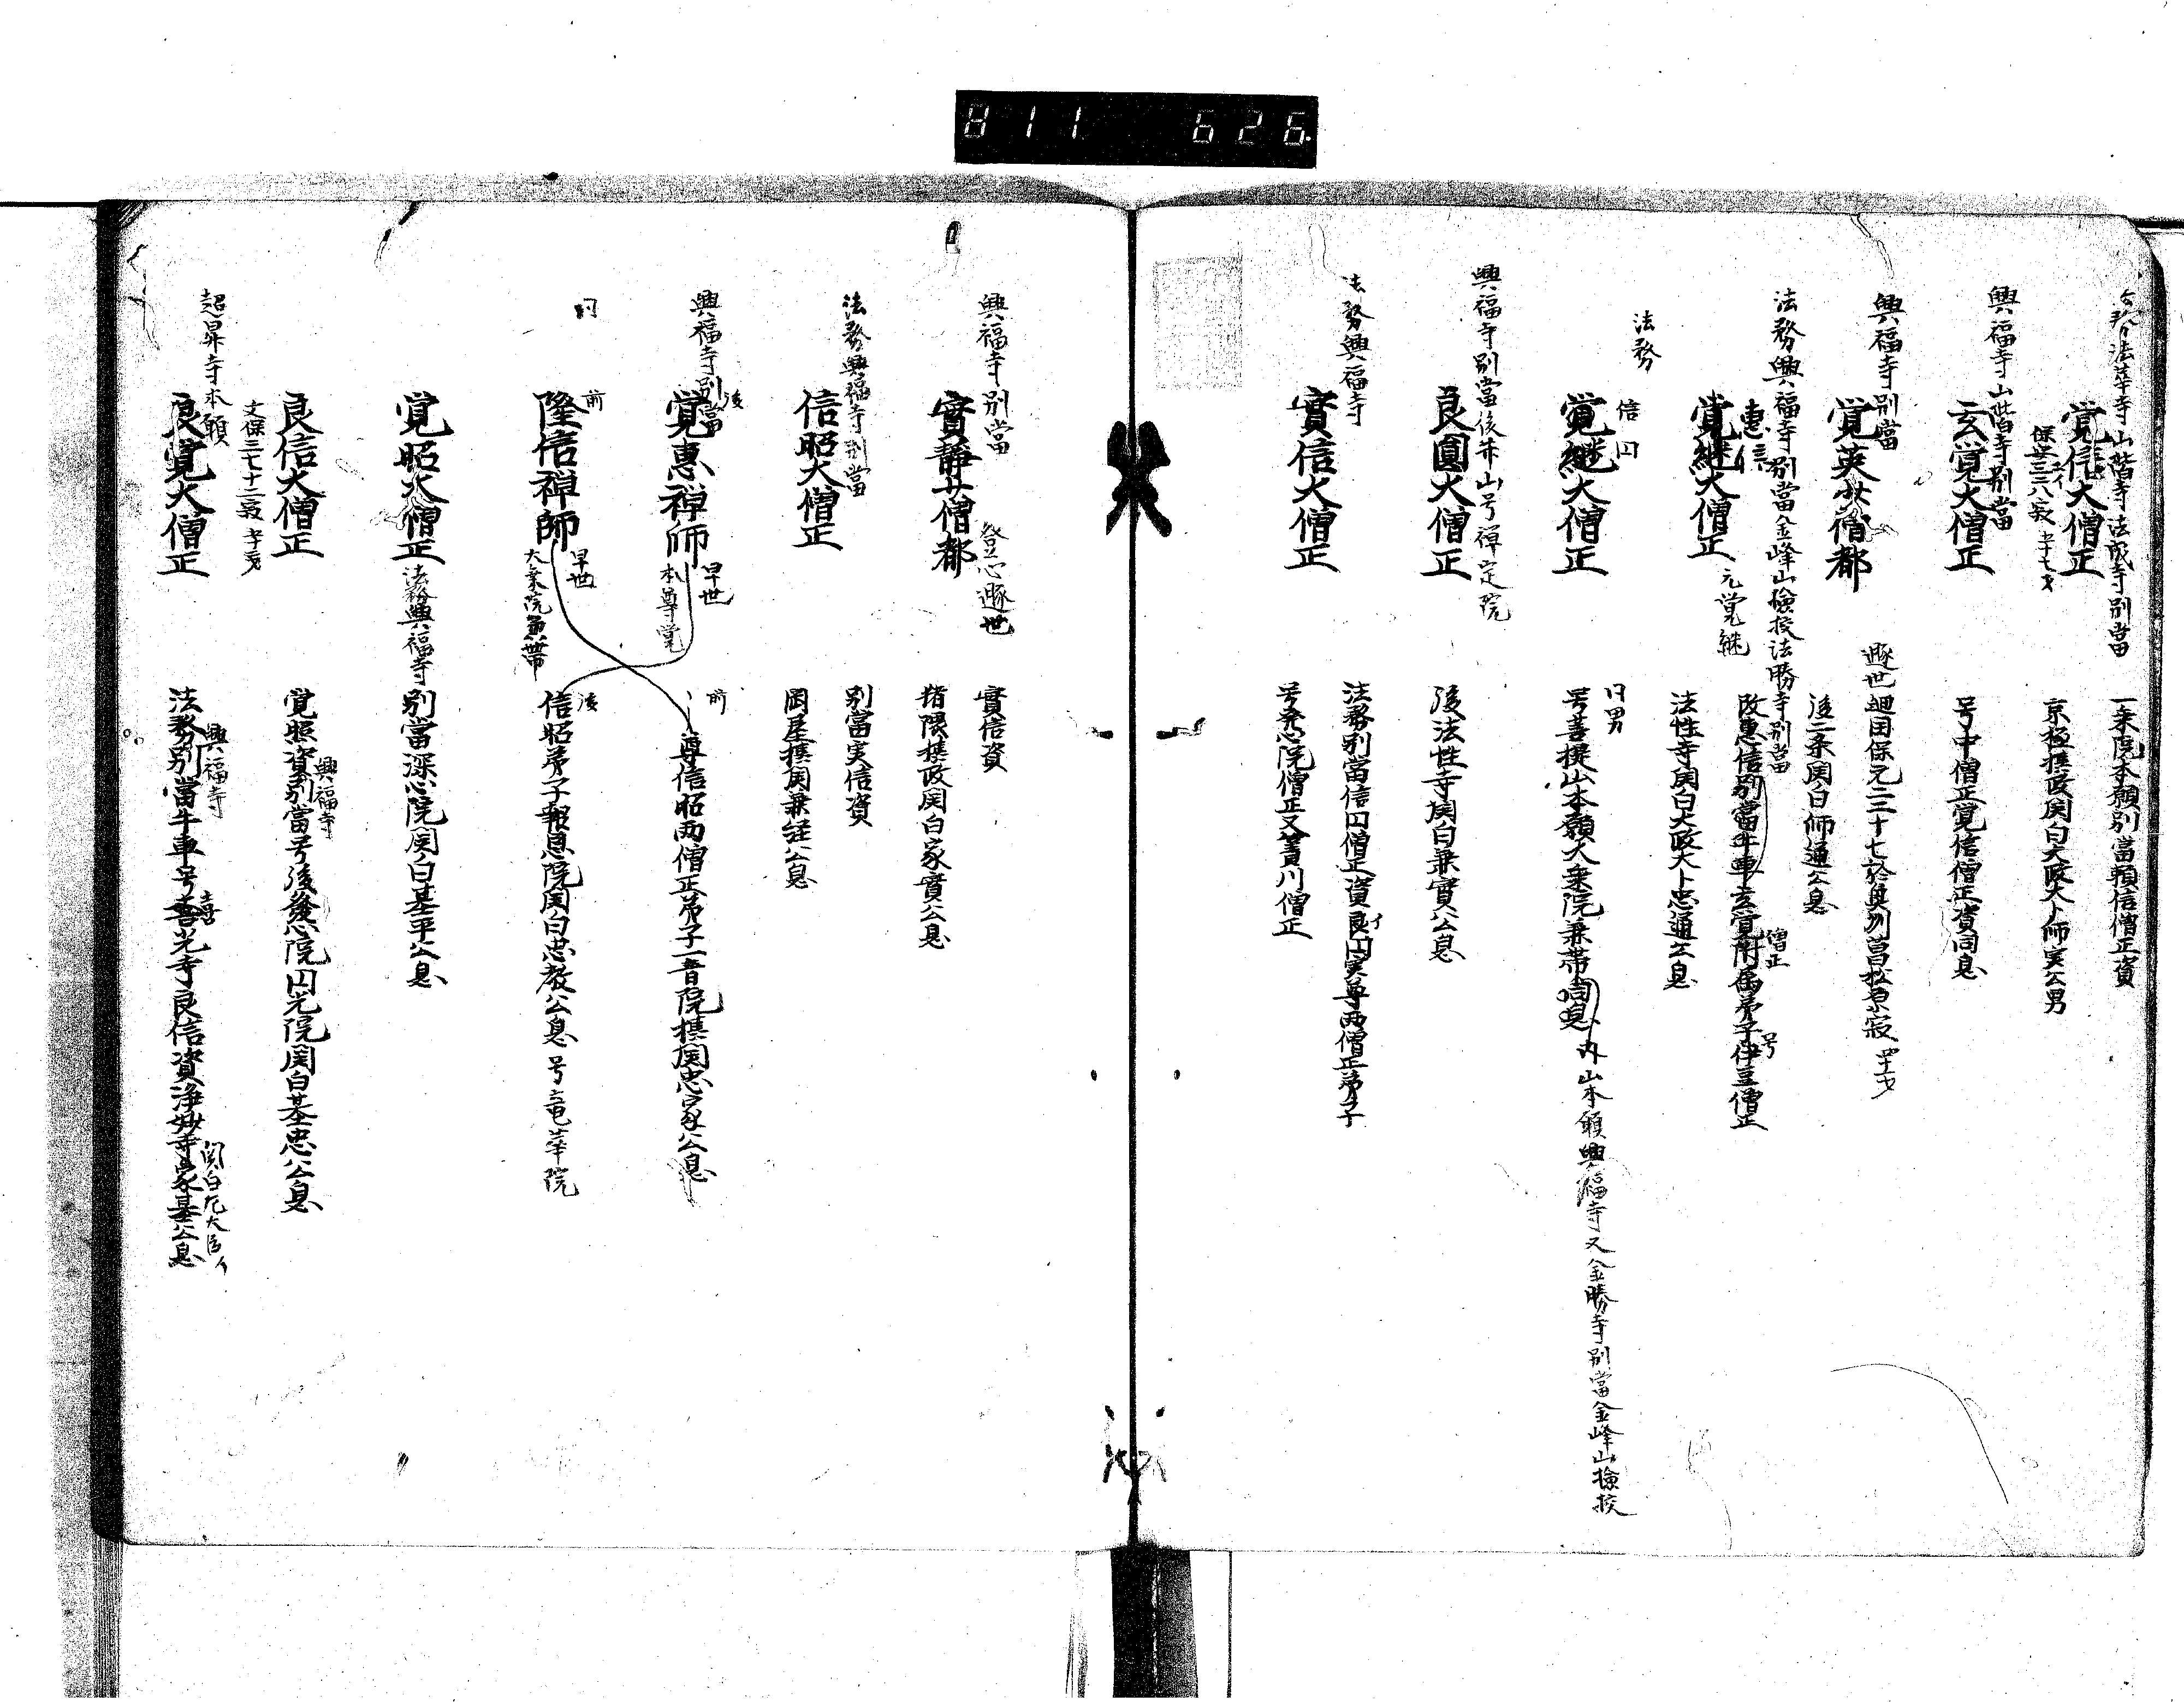 811 626.
法華寺山階寺法成寺別當
覚信大僧正
一乗院本願別當頼信僧正資
京極摂政関白太政大卜師実公男
興福寺山階寺別當
玄覚大僧正
号中僧正覚信僧正資同息
興福寺別當
覚英少僧都
遯世廻国保元二二十七於奥州菖松原寂
後二条関白師通公息
法務興福寺別當金峰山撿挍法勝寺別當
惠信
覚継大僧正
元覚継
改惠信別當牛車玄覚附属弟子伊豆僧正
僧正
号
法性寺関白太政大卜忠通公息
法務
信円
覚継大僧正
同男
号菩提山本願大乗院兼帯同息
内山本願興福寺又金勝寺別當金峰山撿挍
興福寺別當後赤山号禅定院
良圓大僧正
後法性寺関白兼實公息
法務興福寺
實信大僧正
法務別當信円僧正資良円実尊両僧正弟子
号発心院僧正又菩川僧正
興福寺別當
實静少僧都
登心遯世
實信資
猪隈摂政関白家實公息
法務興福寺別當
信昭大僧正
別當実信資
岡屋摂関兼経公息
興福寺別當
後
覚惠禅師
早世
本尊覚
前
尊信昭両僧正弟子一音院摂関忠家公息
同
前
隆信禅師
早世
大乗院兼帯
後
信昭弟子報恩院関白忠教公息
号竜華院
覚昭大僧正
法務興福寺
別當深心院関白基平公息
良信大僧正
覚照資別當号後發心院円光院関白基忠公息
興福寺
超昇寺本願
良覚大僧正
法務別當牛車号善光寺良信資浄妙寺家基公息
興福寺
喜
関白左大臣イ